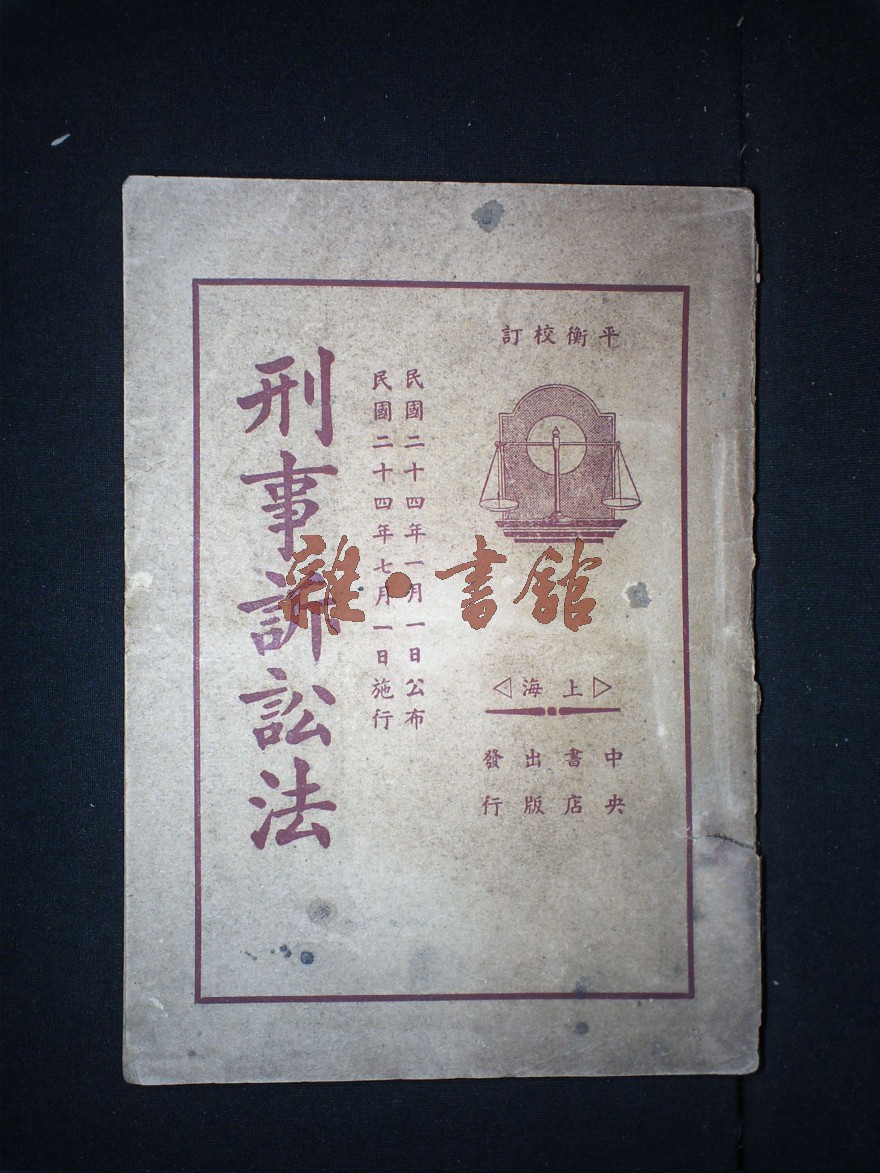 平衡校訂
上海
中央書店出版發行
民國二十四年一月一日公布
民國二十四年七月一日施行
刑事訴訟法
雜·書館